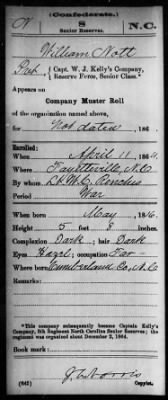 (Confederate.)
N 8 N.C.
Senior Reserves.
William Nott
Pvt, Capt. W. J. Kelly's Company,
Reserve Force, Senior Class.*
Appears on
Company Muster Roll
of the organization named above,
for Not dated, 186
Enlisted:
When April 11, 1864.
Where Fayetteville, N.C.
By whom
Period War
When born May, 1816.
Height 5 feet 8 inches.
Complexion Dark; hair Dark
Eyes Hazel; occupation Far
Where born Cumberland Co, N.C.
Remarks:
*This company subsequently became Captain Kelly's
Company, 8th Regiment North Carolina Senior Reserves; the
regiment was organized about December 2, 1864.
Book mark:
(642)